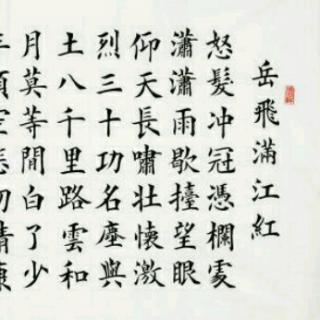 岳飛滿江紅
怒髮冲冠憑欄處
瀟瀟雨歇擡望眼
仰天長嘯壯懷激
烈三十功名塵與
土八千里路雲和
月莫等閒白了少